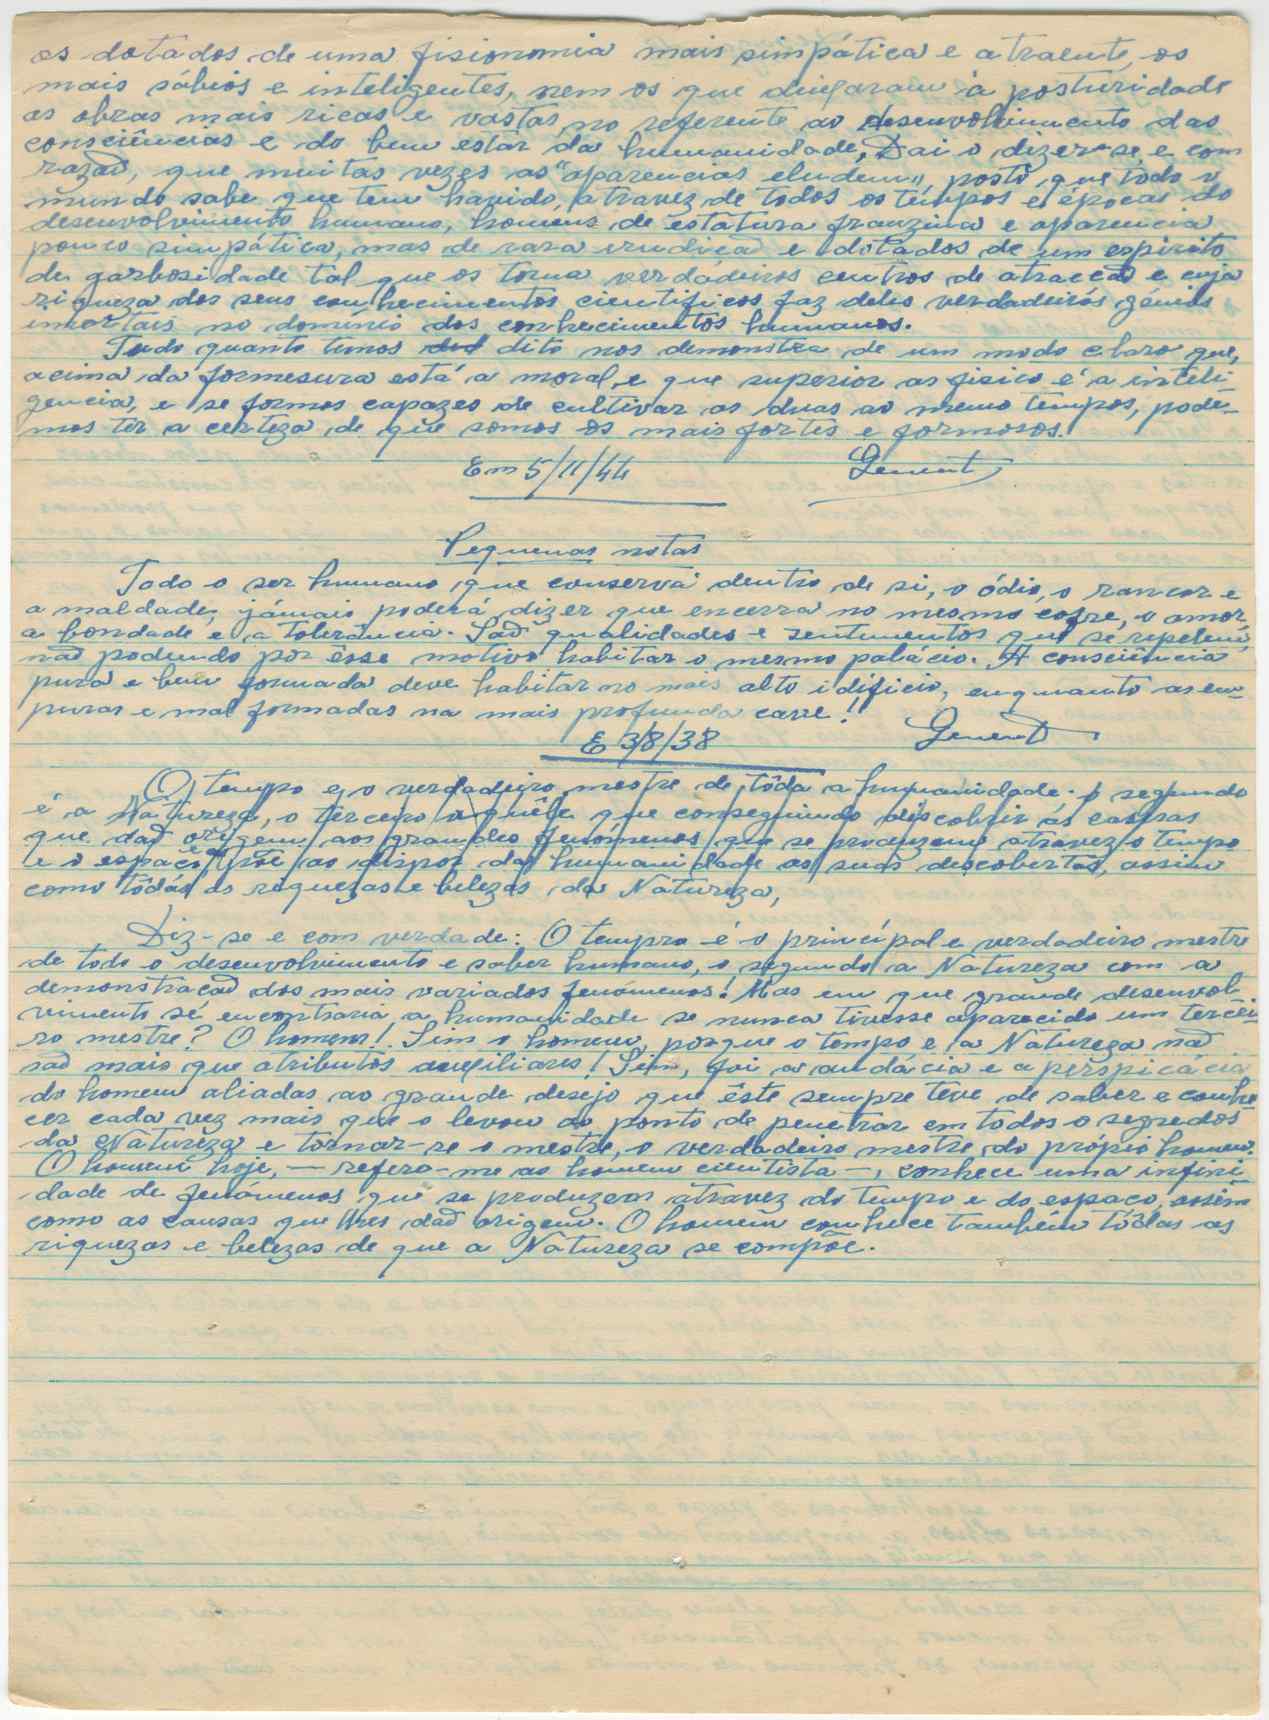 os dotados de uma fisionomia mais simpática e atraente, os
mais sábios e inteligentes, nem os que deixaram à posturidade
as obras mais ricas e vastas no referente ao desenvolvimento das
consciências e do bem estar da humanidade, Dai o dizer-se e com
razaõ, que muitas vezes as "aparencias eludem" posto que todo o
mundo sabe que tem havido, atravez de todos os tempos e épocas do
desenvolvimento humano, homens de estatura franzina e aparencia
pouco simpática, mas de rara erudicaõ e dotados de um espirito
de garbosidade tal que os torna verdádeiros centros de atraccaõ e cuja
riqueza dos seus conhecimentos cientificos faz deles verdadeiros génios
imortais no domínio dos conhecimentos humanos.
Tudo quanto temos dito nos demonstra de um modo claro que,
acima da formosura está a moral, e que superior ao fisico é a inteli-
gencia, e se formos capazes de cultivar as duas ao memo tempos, pode-
mos ter a certeza de que somos os mais fortes e formosos.
Em 5/11/44
Pequenas notas
Todo o ser humano que conserva dentro de si, o ódio, o rancor e
a maldade, jámais poderá dizer que encerra no mesmo cofre, o amor,
a bondade e a tolerância. Saõ qualidades e sentimentos que se repelem,
naõ podendo por êsse motivo habitar o mesmo palácio. A consciência
pura e bem formada deve habitar no mais alto idificio, enquanto as em-
puras e mal formadas na mais profunda cave!
E 3/8/38
O tempo é o verdadeiro mestre de tôda a humanidade. o segundo
é a Natureza, o terceiro aquêle que conseguindo discobrir ás causas
que daõ origem aos grandes fenómenos que se produzem atravez o tempo
e o espaço, poe ao dispor da humanidade as suas descobertas, assim
como tôdas as riquezas e belezas da Natureza,
Diz-se e com verdade: O tempo é o principal e verdadeiro mestre
de todo o desenvolvimento e saber humano, o segundo a Natureza com a
demonstracaõ dos mais variados fenómenos! Mas em que grande desenvol-
vimento se encontraria a humanidade se nunca tivesse aparecido um tercei-
ro mestre? O homem! Sim o homem, porque o tempo e a Natureza naõ
saõ mais que atributos auxiliares! Sim, foi a audácia e a perspicácia
do homem aliadas ao grande desejo que êste sempre teve de saber e conhe
cer cada vez mais que o levou ao ponto de penetrar em todos o segredos
da Natureza e tornar-se o mestre, o verdadeiro mestre do própio homem.
O homem hoje, — refero-me ao homem cientista —, conhece uma infini-
dade de fenómenos que se produzem atravez do tempo e do espaço, assim
como as causas que lhes daõ origem. O homem conhece também tôdas as
riquezas e belezas de que a Natureza se compõe.